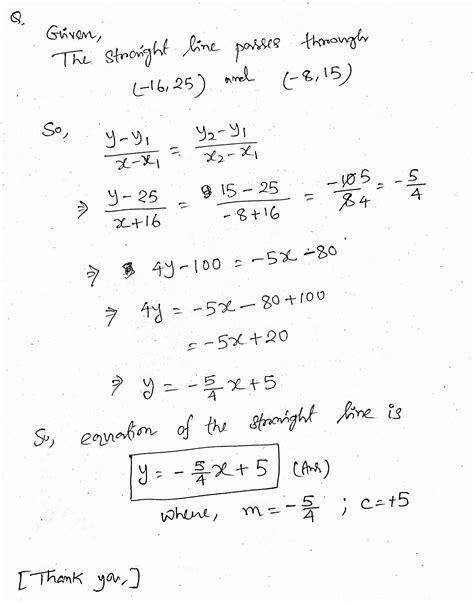 Q.
Given,
The straight line passes through
(-16, 25) and (-8, 15)
So, (y-y₁)/(x-x₁) = (y₂-y₁)/(x₂-x₁)
⇒ (y-25)/(x+16) = (15-25)/(-8+16) = -10 5/8 4 = -5/4
⇒ 4y-100 = -5x-80
⇒ 4y = -5x-80+100
= -5x+20
⇒ y = -5/4 x+5
So, equation of the straight line is
y = -5/4 x+5 (Ans)
where, m = -5/4 ; c=+5
[Thank you,]